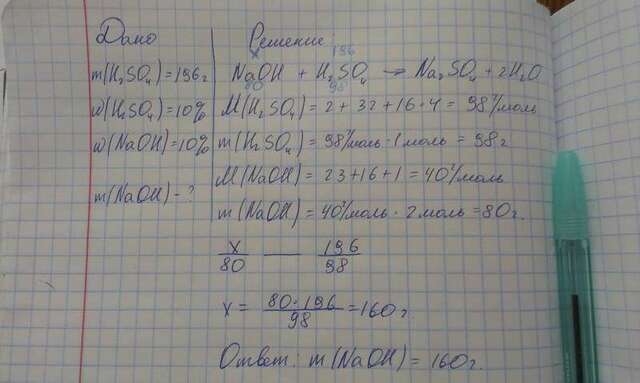 Дано
m(H₂SO₄)=196г
ω(H₂SO₄)=10%
ω(NaOH)=10%
m(NaOH)-?
Решение:
x 196
NaOH + H₂SO₄ → Na₂SO₄ + 2H₂O
80 98
M(H₂SO₄) = 2 + 32 + 16·4 = 98г/моль
m(H₂SO₄) = 98г/моль · 1 моль = 98г
M(NaOH) = 23+16+1 = 40г/моль
m(NaOH) = 40г/моль · 2 моль = 80г.
x/80 — 196/98
x = 80·196/98 = 160г
Ответ: m(NaOH) = 160г.